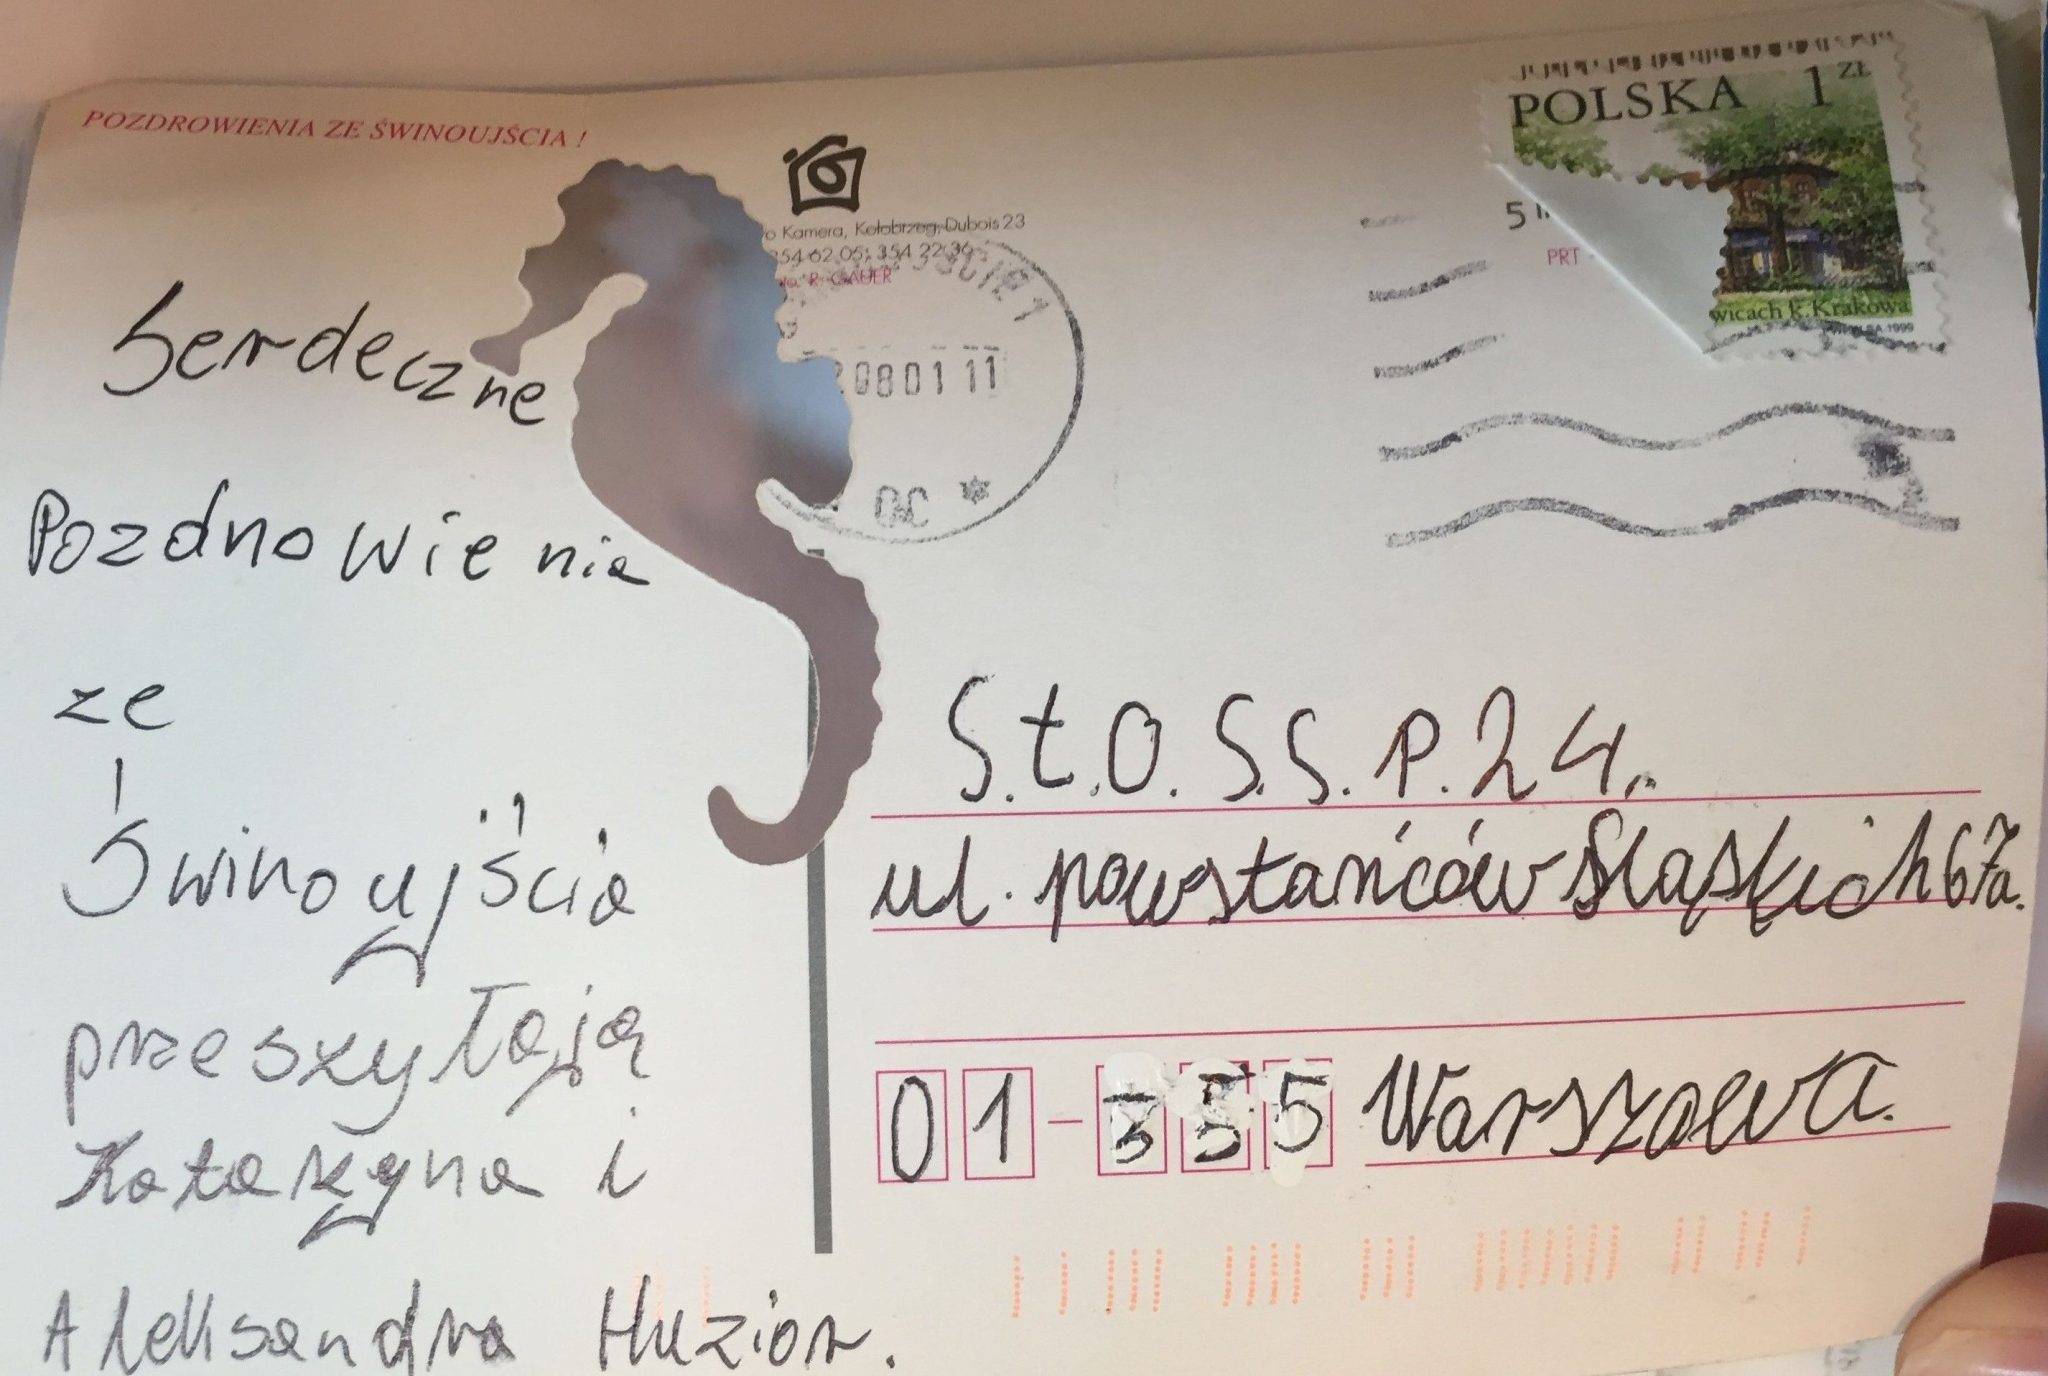 POZDROWIENIA ZE ŚWINOUJŚCIA !
Kamera, Kołobrzeg, Dubois 23
354 62 05; 354 22 36
POLSKA 1 ZŁ
wicach k. Krakowa
1999
5
PRT
0801 11
Serdeczne
Pozdrowienia
ze
Świnoujścia
przesyłają
Katarzyna i
Aleksandra Huzior.
S.t.O. S.S. P. 24.
ul. powstańców Śląskich 67a.
01-355 Warszawa.